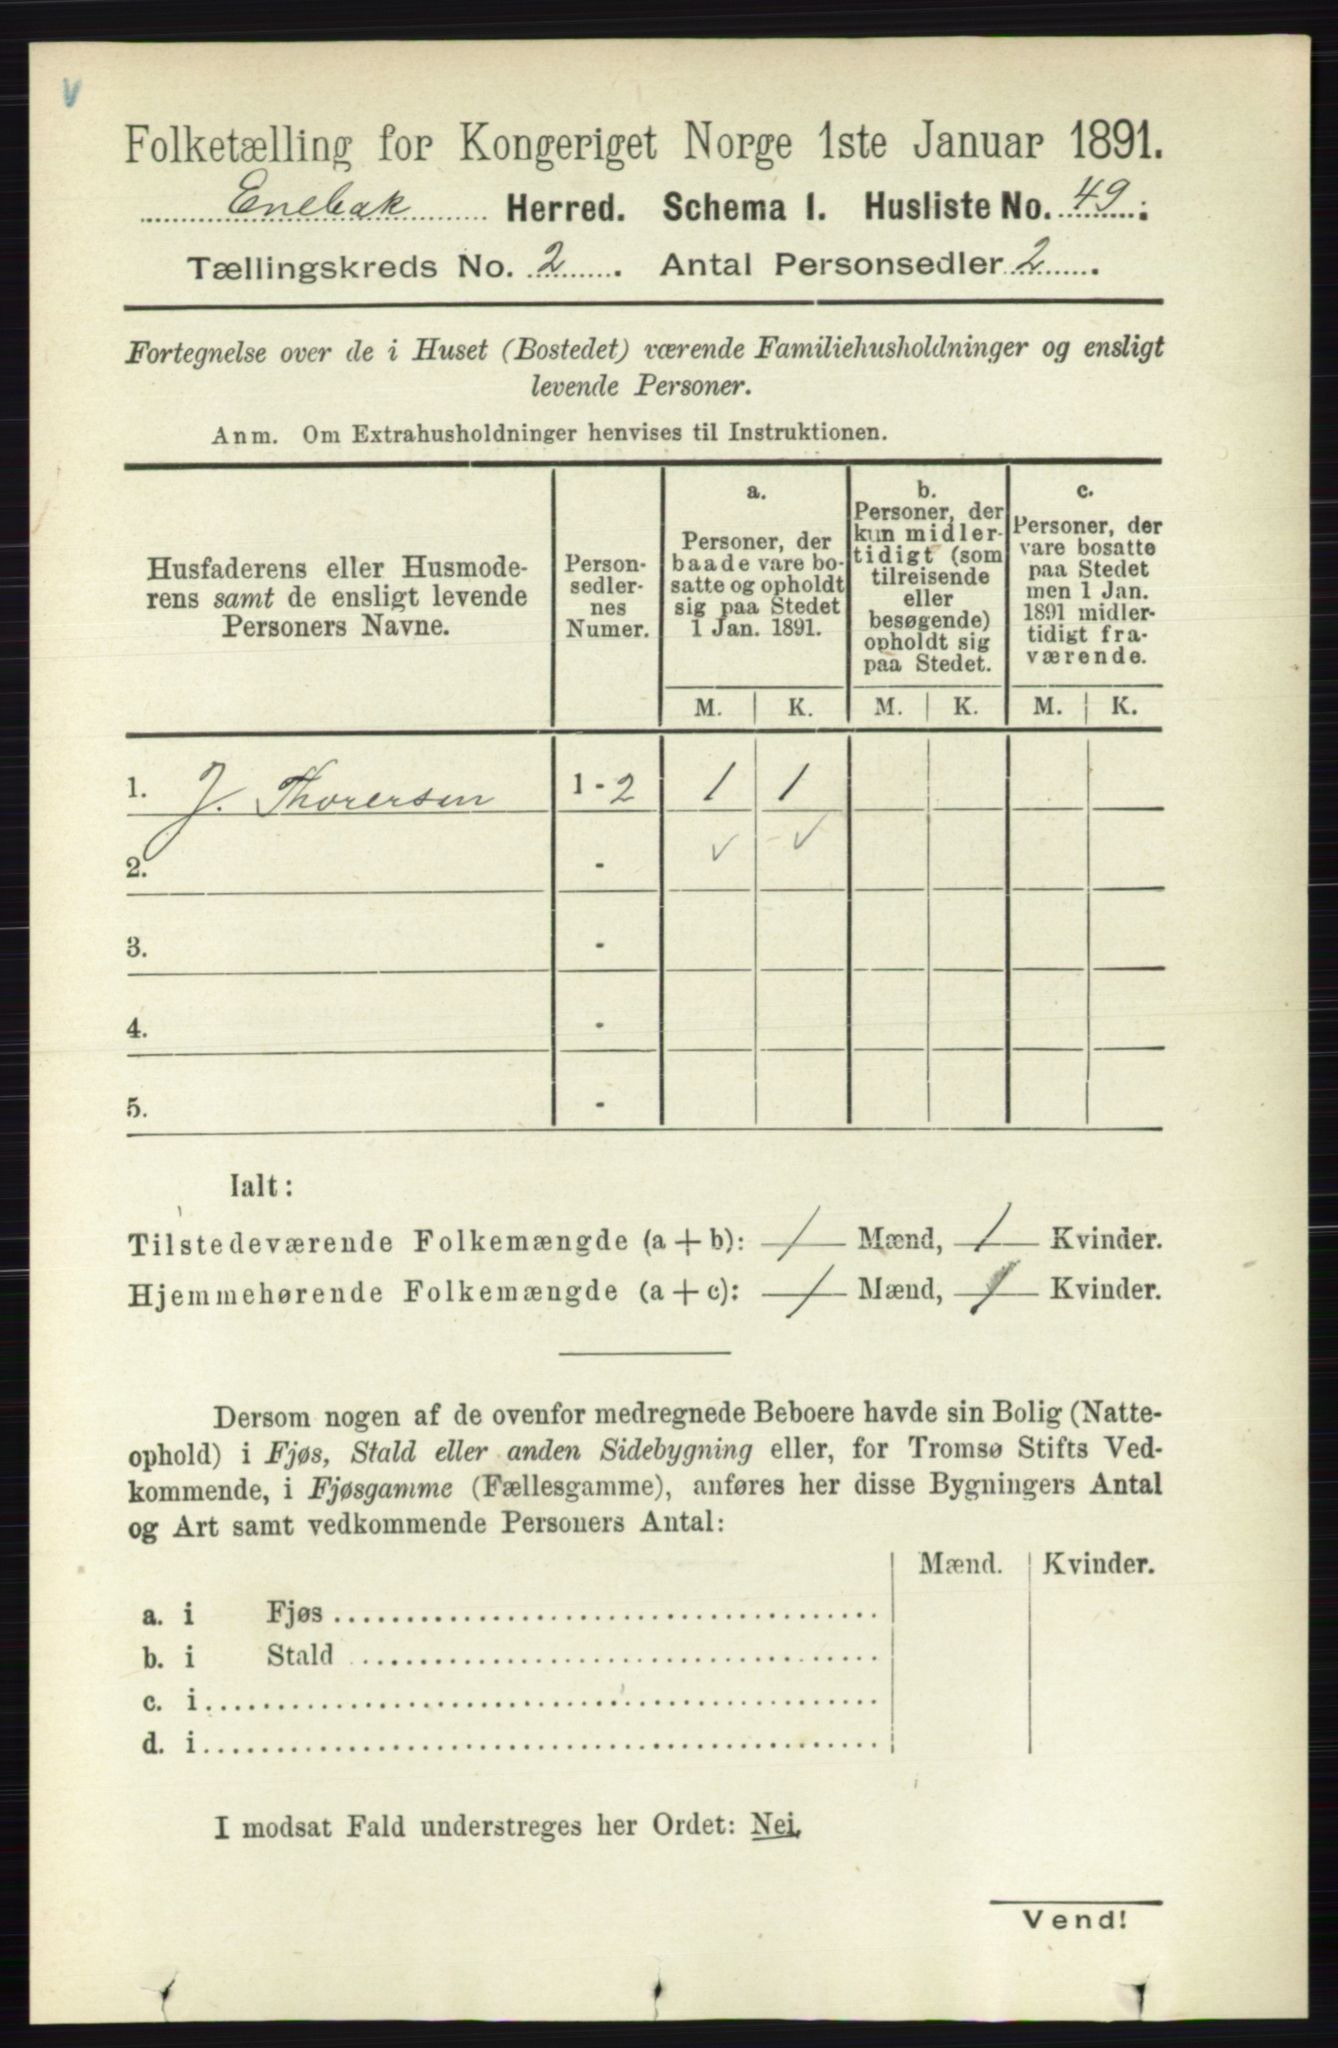 Folketælling for Kongeriget Norge 1ste Januar 1891.
Enebak Herred. Schema I. Husliste No. 49.
Tællingskreds No. 2. Antal Personsedler 2.
Fortegnelse over de i Huset (Bostedet) værende Familiehusholdninger og ensligt
levende Personer.
Anm. Om Extrahusholdninger henvises til Instruktionen.
Husfaderens eller Husmode-
rens samt de ensligt levende
Personers Navne.
Person-
sedler-
nes
Numer.
a.
Personer, der
baade vare bo-
satte og opholdt
sig paa Stedet
1 Jan. 1891.
b.
Personer, der
kun midler-
tidigt (som
tilreisende
eller
besøgende)
opholdt sig
paa Stedet.
c.
Personer, der
vare bosatte
paa Stedet
men 1 Jan.
1891 midler-
tidigt fra-
værende.
M. K. M. K. M. K.
1. J. Thorersen 1 - 2 1 1
2. - ✓ ✓
3. -
4. -
5. -
Ialt:
Tilstedeværende Folkemængde (a + b): 1 Mænd, 1 Kvinder.
Hjemmehørende Folkemængde (a + c): 1 Mænd, 1 Kvinder.
Dersom nogen af de ovenfor medregnede Beboere havde sin Bolig (Natte-
ophold) i Fjøs, Stald eller anden Sidebygning eller, for Tromsø Stifts Ved-
kommende, i Fjøsgamme (Fællesgamme), anføres her disse Bygningers Antal
og Art samt vedkommende Personers Antal:
Mænd. Kvinder.
a. i Fjøs
b. i Stald
c. i
d. i
I modsat Fald understreges her Ordet: Nei.
Vend!